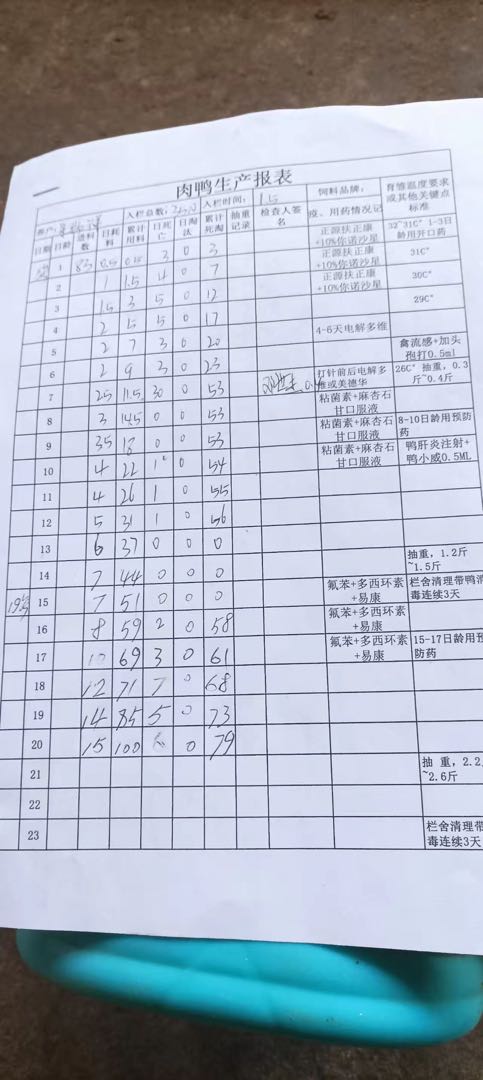 肉鸭生产报表
入栏总数: 入栏时间: 饲料品牌: 育雏温度要求或其他关键点标准
日期 日龄 进料数 日耗料 累计用料 日死亡 日淘汰 累计死淘 抽重记录 检查人签名 疫、用药情况记
1 83 0.5 0.5 3 0 3 正源扶正康+10%你诺沙星 32~31C° 1-3日龄用开口药
2 1 1.5 4 0 7 正源扶正康+10%你诺沙星 31C°
3 1.5 3 5 0 12 正源扶正康+10%你诺沙星 30C°
4 2 5 5 0 17 29C°
5 2 7 3 0 20 4-6天电解多维
6 2 9 3 0 23 禽流感+加头孢打0.5ml
7 25 11.5 30 0 53 打针前后电解多维或美德华 26C° 抽重,0.3斤~0.4斤
8 3 14.5 0 0 53 粘菌素+麻杏石甘口服液
9 35 18 0 0 53 粘菌素+麻杏石甘口服液 8-10日龄用预防药
10 4 22 1 0 54 粘菌素+麻杏石甘口服液 鸭肝炎注射+鸭小威0.5ML
11 4 26 1 0 55
12 5 31 1 0 56
13 6 37 0 0 0
14 7 44 0 0 0 抽重,1.2斤~1.5斤
15 7 51 0 0 0 氟苯+多西环素+易康 栏舍清理带鸭消毒连续3天
16 8 59 2 0 58 氟苯+多西环素+易康
17 10 69 3 0 61 氟苯+多西环素+易康 15-17日龄用预防药
18 12 71 7 0 68
19 14 85 5 0 73
20 15 100 6 0 79
21 抽 重,2.2~2.6斤
22
23 栏舍清理带毒连续3天